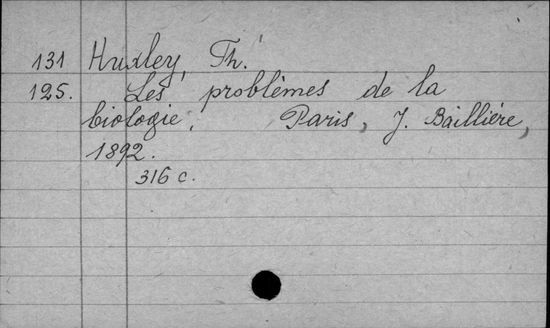 131 Huxley, Th.
125. Les problèmes de la
biologie. Paris, J. Baillière,
1892.
316 c.